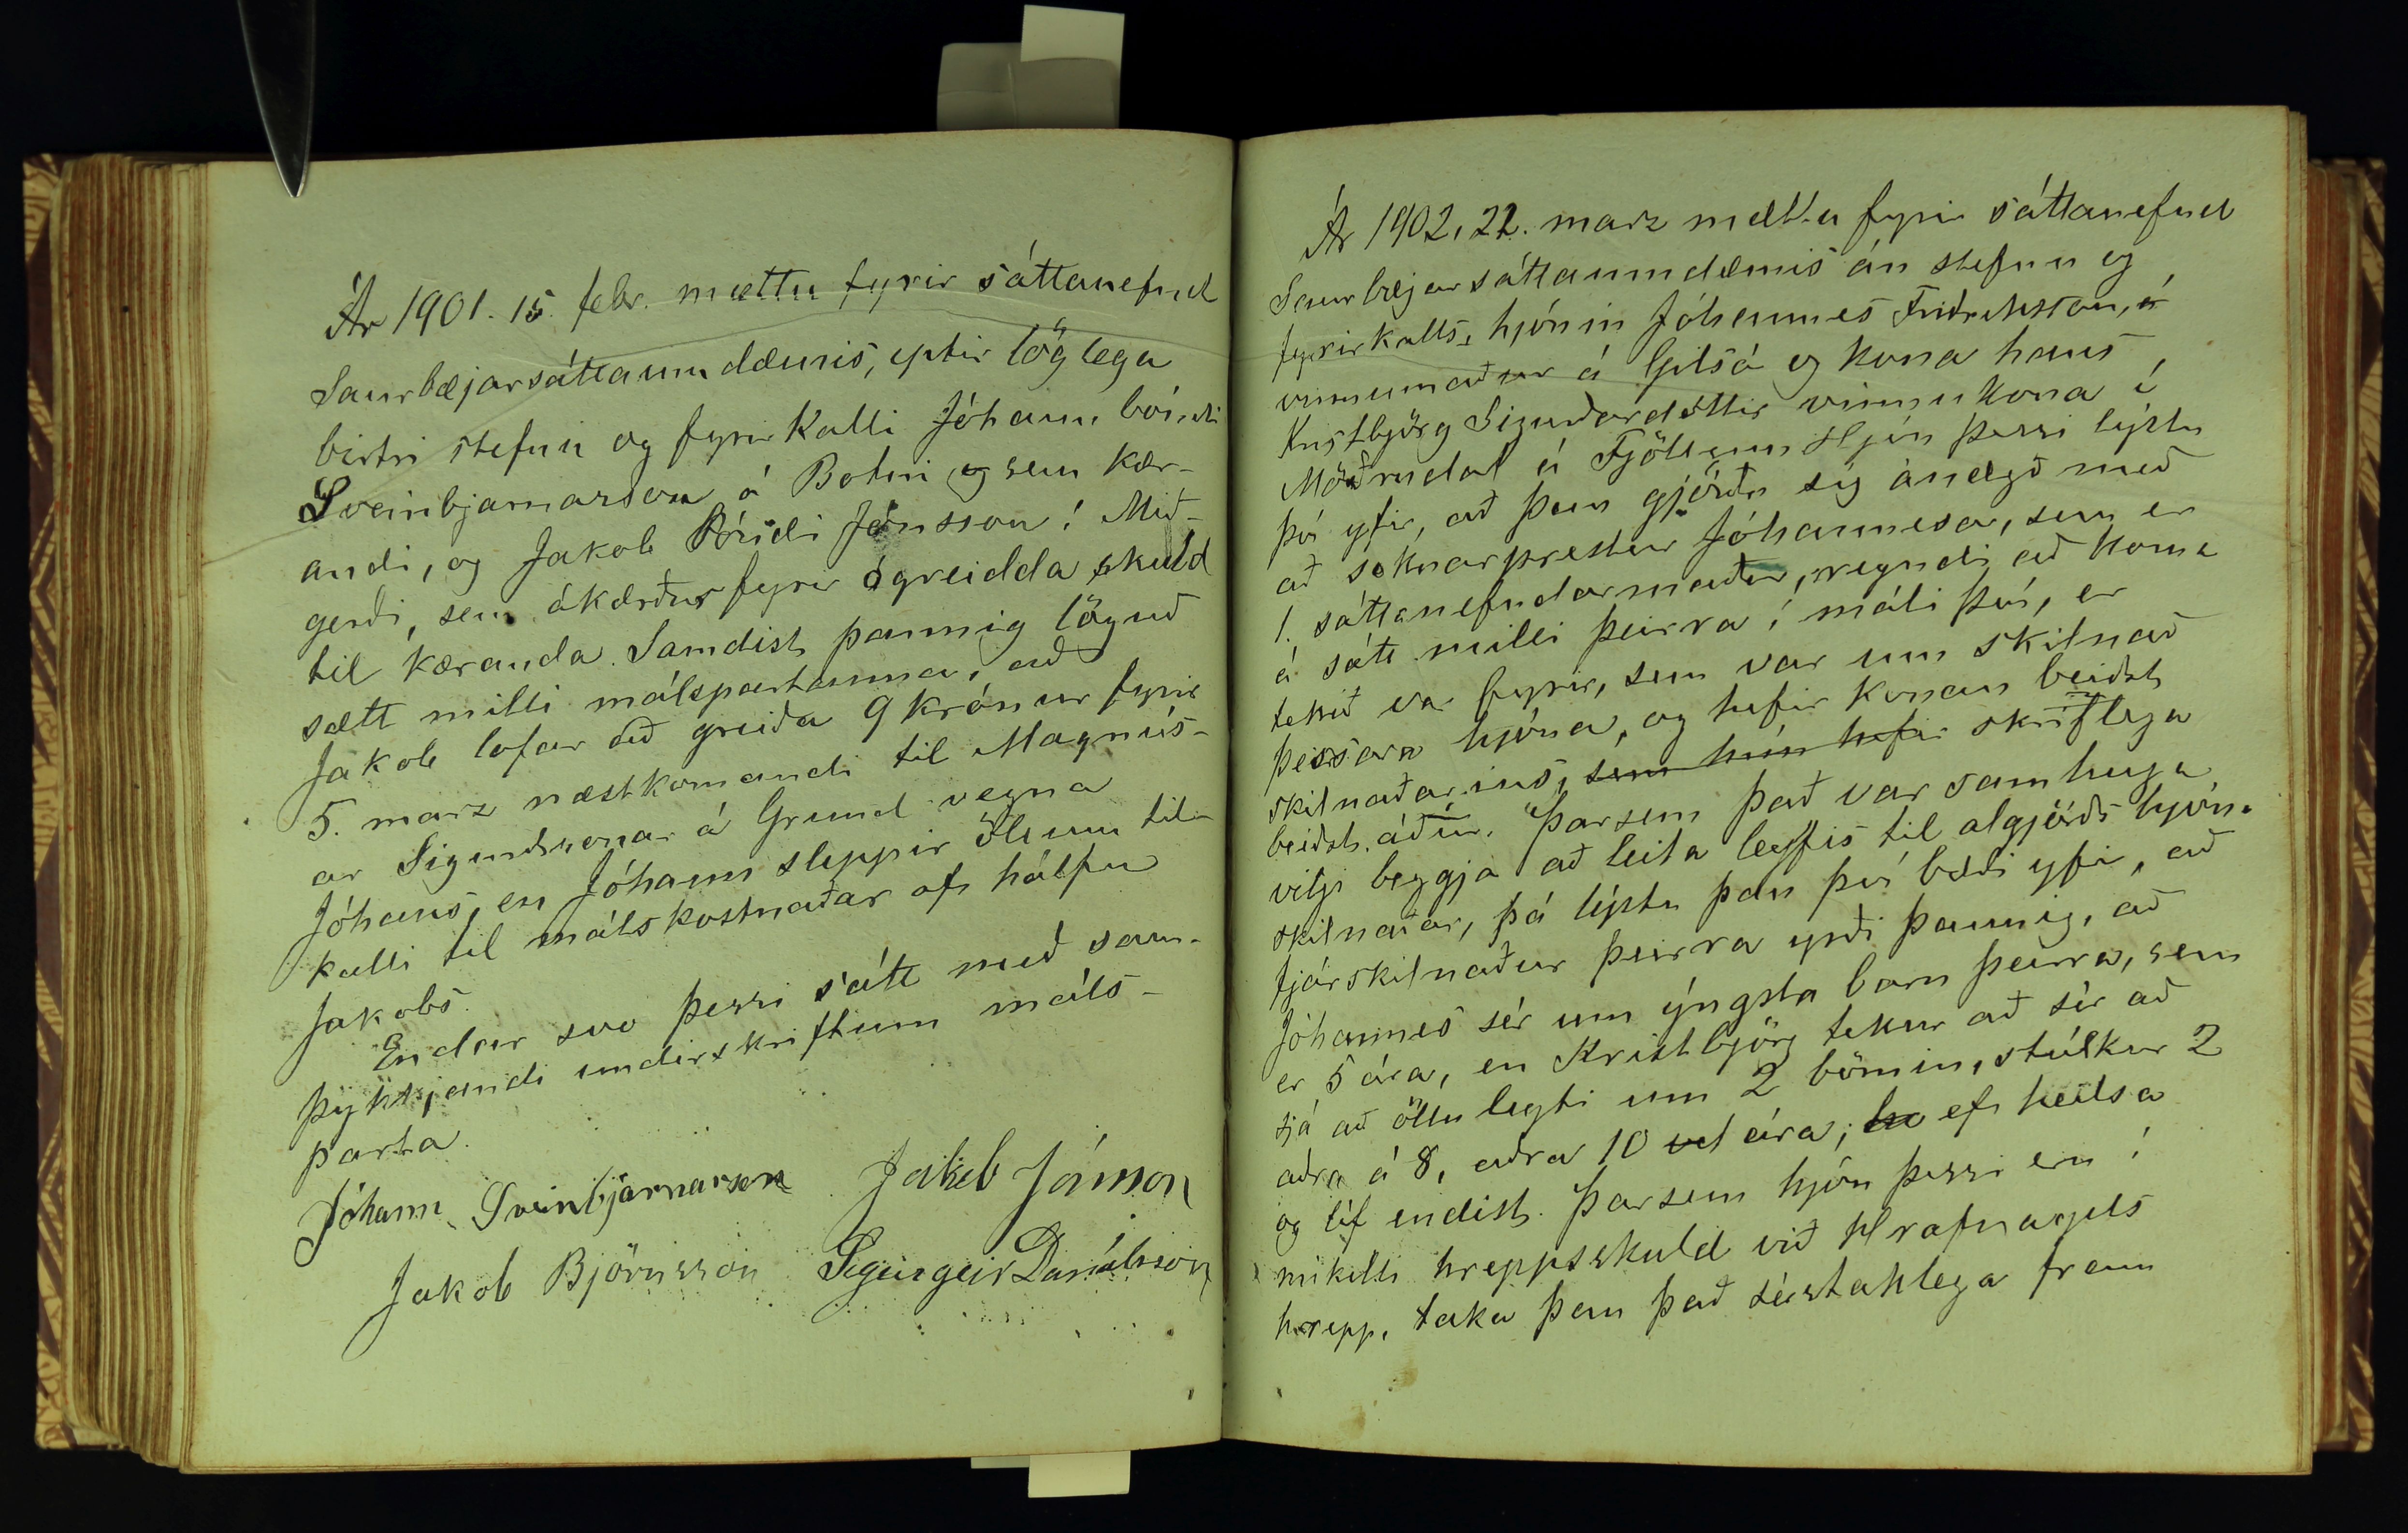 Ár 1901. 15. febr. mættu fyrir sáttanefnd
Saurbæjarsáttaumdæmis, eptir löglega
birtri stefnu og fyrirkalli Jóhann bóndi
Sveinbjarnarson á Botni og sem kær-
andi, og Jakob Bóndi Jónsson í Mið-
gerði, sem ákærður fyrir ógreidda skuld
til kæranda. Samdist þannig löguð
sætt milli málspartanna, að
Jakob lofar að greiða 9 krónur fyrir
5. marz næstkomandi til Magnús-
ar Sigurðssonar á Grund vegna
Jóhans, en Jóhann sleppir öllum til-
kalli til málskostnaðar af hálfu
Jakobs.
Endar svo þessi sátt með sam-
þykkjandi undirskriftum máls-
parta.
Jóhann Sveinbjarnarson Jakob Jónsson
Jakob Björnsson Sigurgeir Daníelsson
Ár 1902, 22. marz mættu fyrir sáttanefnd
Saurbæjarsáttaumdæmis án stefnu og
fyrirkalls, hjónin Jóhannes Friðriksson, á
vinnumaður á Gilsá og kona hans
Kristbjörg Sigurðardóttir vinnukona í
Möðrudal á Fjöllum Hjón þessi lýstu
því yfir, að þau gjörðu sig ánægð með
að soknarprestur Jóhannesar, sem er
1. sáttanefndarmaður, reyndi að koma
á sátt milli þeirra í máli því, er
tekið var fyrir, sem var um skilnað
þessara hjóna, og hefir konan beiðst
skilnaðarins, sem hún hefir skriflega
beiðst áður. Þarsem það var samhuga
vilji beggja að leita leyfis til algjörðs hjóna
skilnaðar, þá lýstu þau því bæði yfir, að
fjárskilnaður þeirra yrði þannig, að
Jóhannes sér um ýngsta barn þeirra, sem
er 5 ára, en Kristbjörg tekur að sér að
sjá að öllu leyti um 2 börnin, stúlkur 2
aðra á 8, aðra 10 vet ára, ha ef heilsa
og líf endist. Þarsem hjón þessi eru í
mikilli hreppsskuld við Hrafnagils
hrepp, taka þau það sérstaklega fram